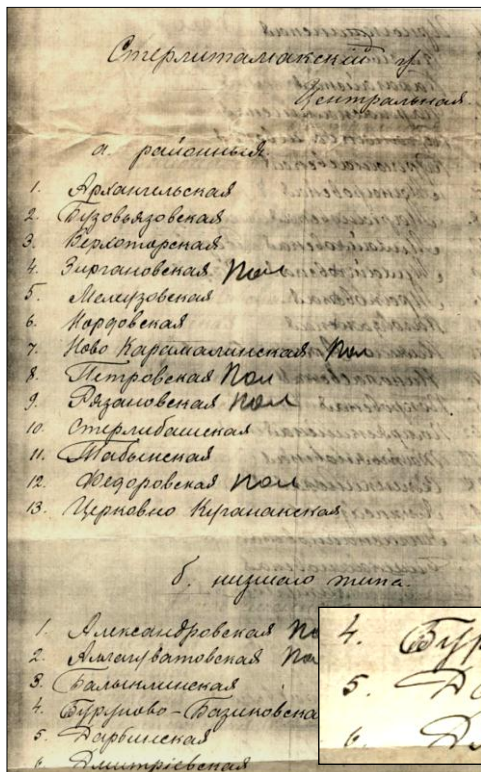 Стерлитамакскій у.
Центральная.
а. районныя.
1. Архангельская
2. Бузовьязовская
3. Верхоторская
4. Зиргановская пол
5. Мелеузовская
6. Нордовская
7. Ново Карамалинская пол
8. Петровская пол
9. Рязановская пол
10. Стерлибашская
11. Табынская
12. Федоровская пол
13. Церковно Куганакская
б. низшаго типа.
1. Александровская по
2. по
3. Балыклинская
4. Бурупово-Базиковска
5. Дарьинская
6. Дмитріевская
4. Бур
5. Да
6. Дм